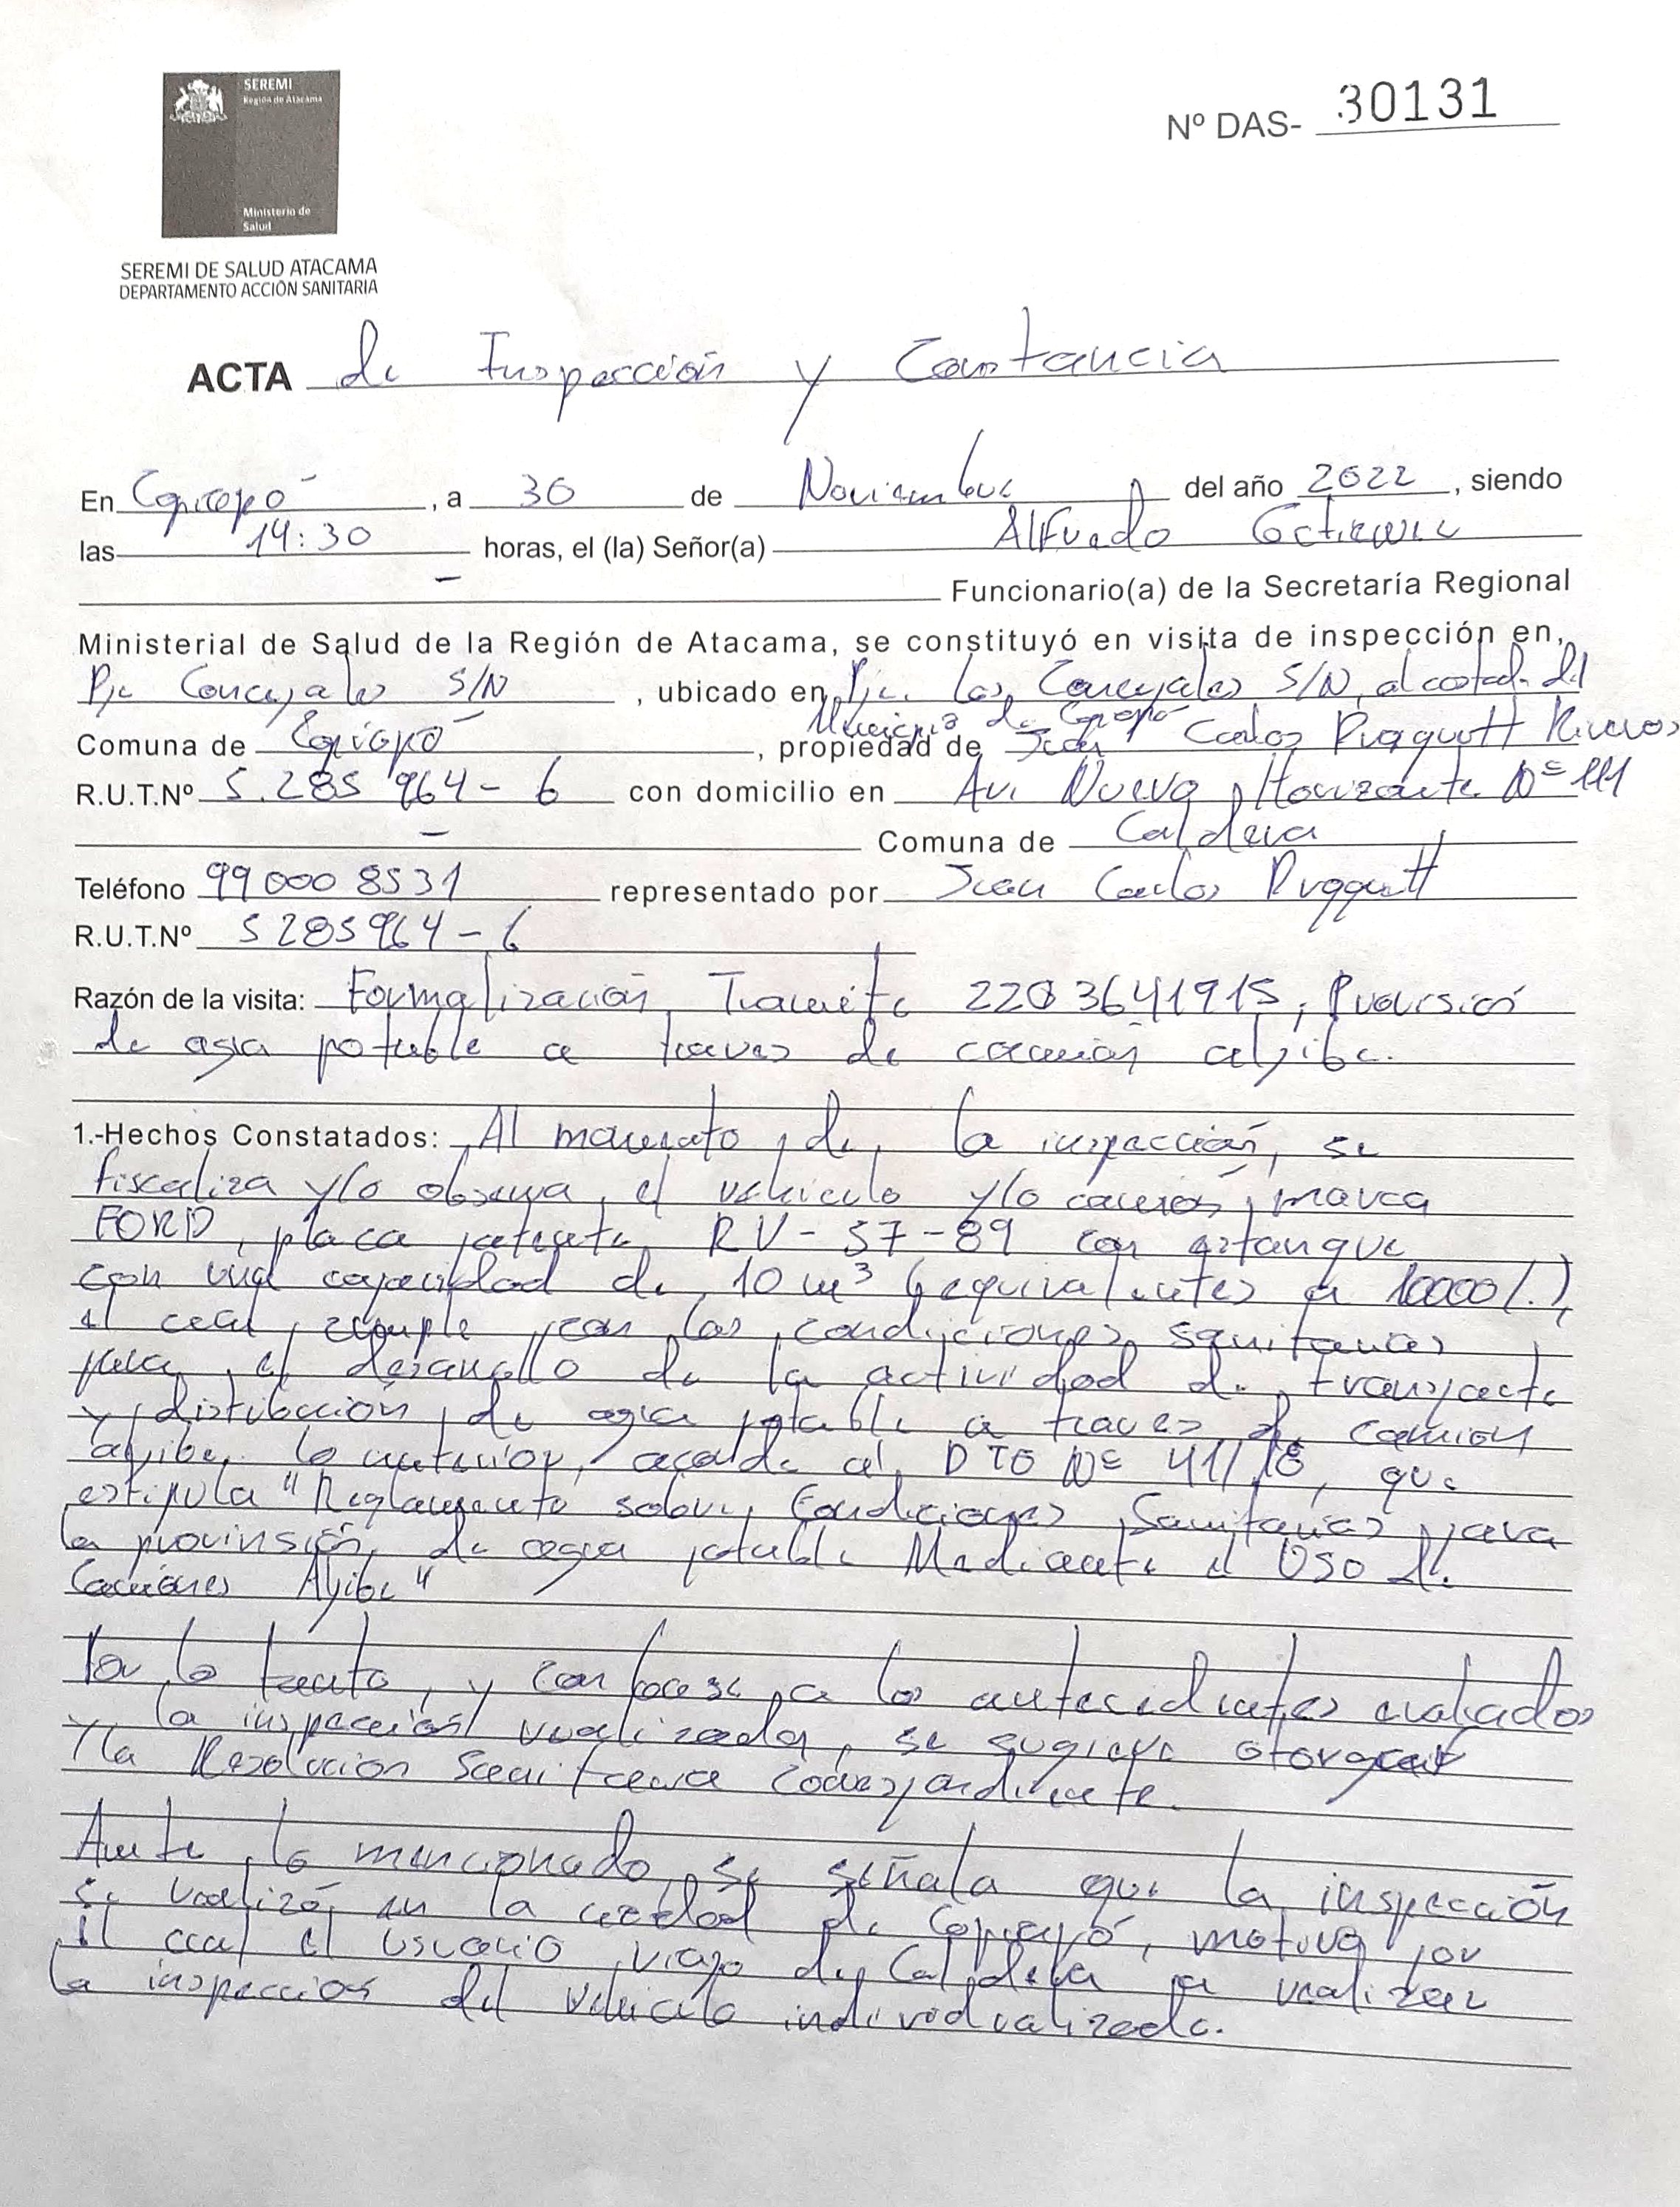 SEREMI
Región de Atacama
Ministerio de
Salud
SEREMI DE SALUD ATACAMA
DEPARTAMENTO ACCIÓN SANITARIA
Nº DAS- 30131
ACTA de Inspección y Constancia
En Copiapó, a 30 de Noviembre del año 2022, siendo
las 14:30 horas, el (la) Señor(a) Alfredo
- Funcionario(a) de la Secretaría Regional
Ministerial de Salud de la Región de Atacama, se constituyó en visita de inspección en,
Pje Concejales S/N, ubicado en Pje. Los Concejales S/N, al costado del
Municipio de Copiapó
Comuna de Copiapó, propiedad de Juan Carlos Riveros
R.U.T.Nº 5.285 964-6 con domicilio en Av. Nueva Horizonte Nº 111
- Comuna de Caldera
Teléfono 99 000 8531 representado por Juan Carlos
R.U.T.Nº 5285964-6
Razón de la visita: Formalización Tramite 2203641915, Provisión
de agua potable a traves de camión aljibe.
1.-Hechos Constatados: Al momento de la inspección, se
fiscaliza y/o observa, el vehiculo y/o camión, marca
FORD, placa patente RV-57-89 con estanque
con una capacidad de 10 m³ (equivalentes a 10000 l.),
el cual cumple con las condiciones sanitarias
para el desarrollo de la actividad de transporte
y distribución de agua potable a traves de camión
aljibe. lo anterior, acorde al DTO Nº 41/18, que
estipula "Reglamento sobre Condiciones Sanitarias para
la provinsión de agua potable Mediante el USO de
Camiones Aljibe"
Por lo tanto, y con base a los antecedentes evaluados
y la inspección realizada, se sugiere otorgar
la Resolución Sanitaria correspondiente.
Ante lo mencionado, se señala que la inspección
se realizó en la ciudad de Copiapó, motivo por
el cual el usuario viajo de Caldera a realizar
la inspección del vehiculo individualizado.